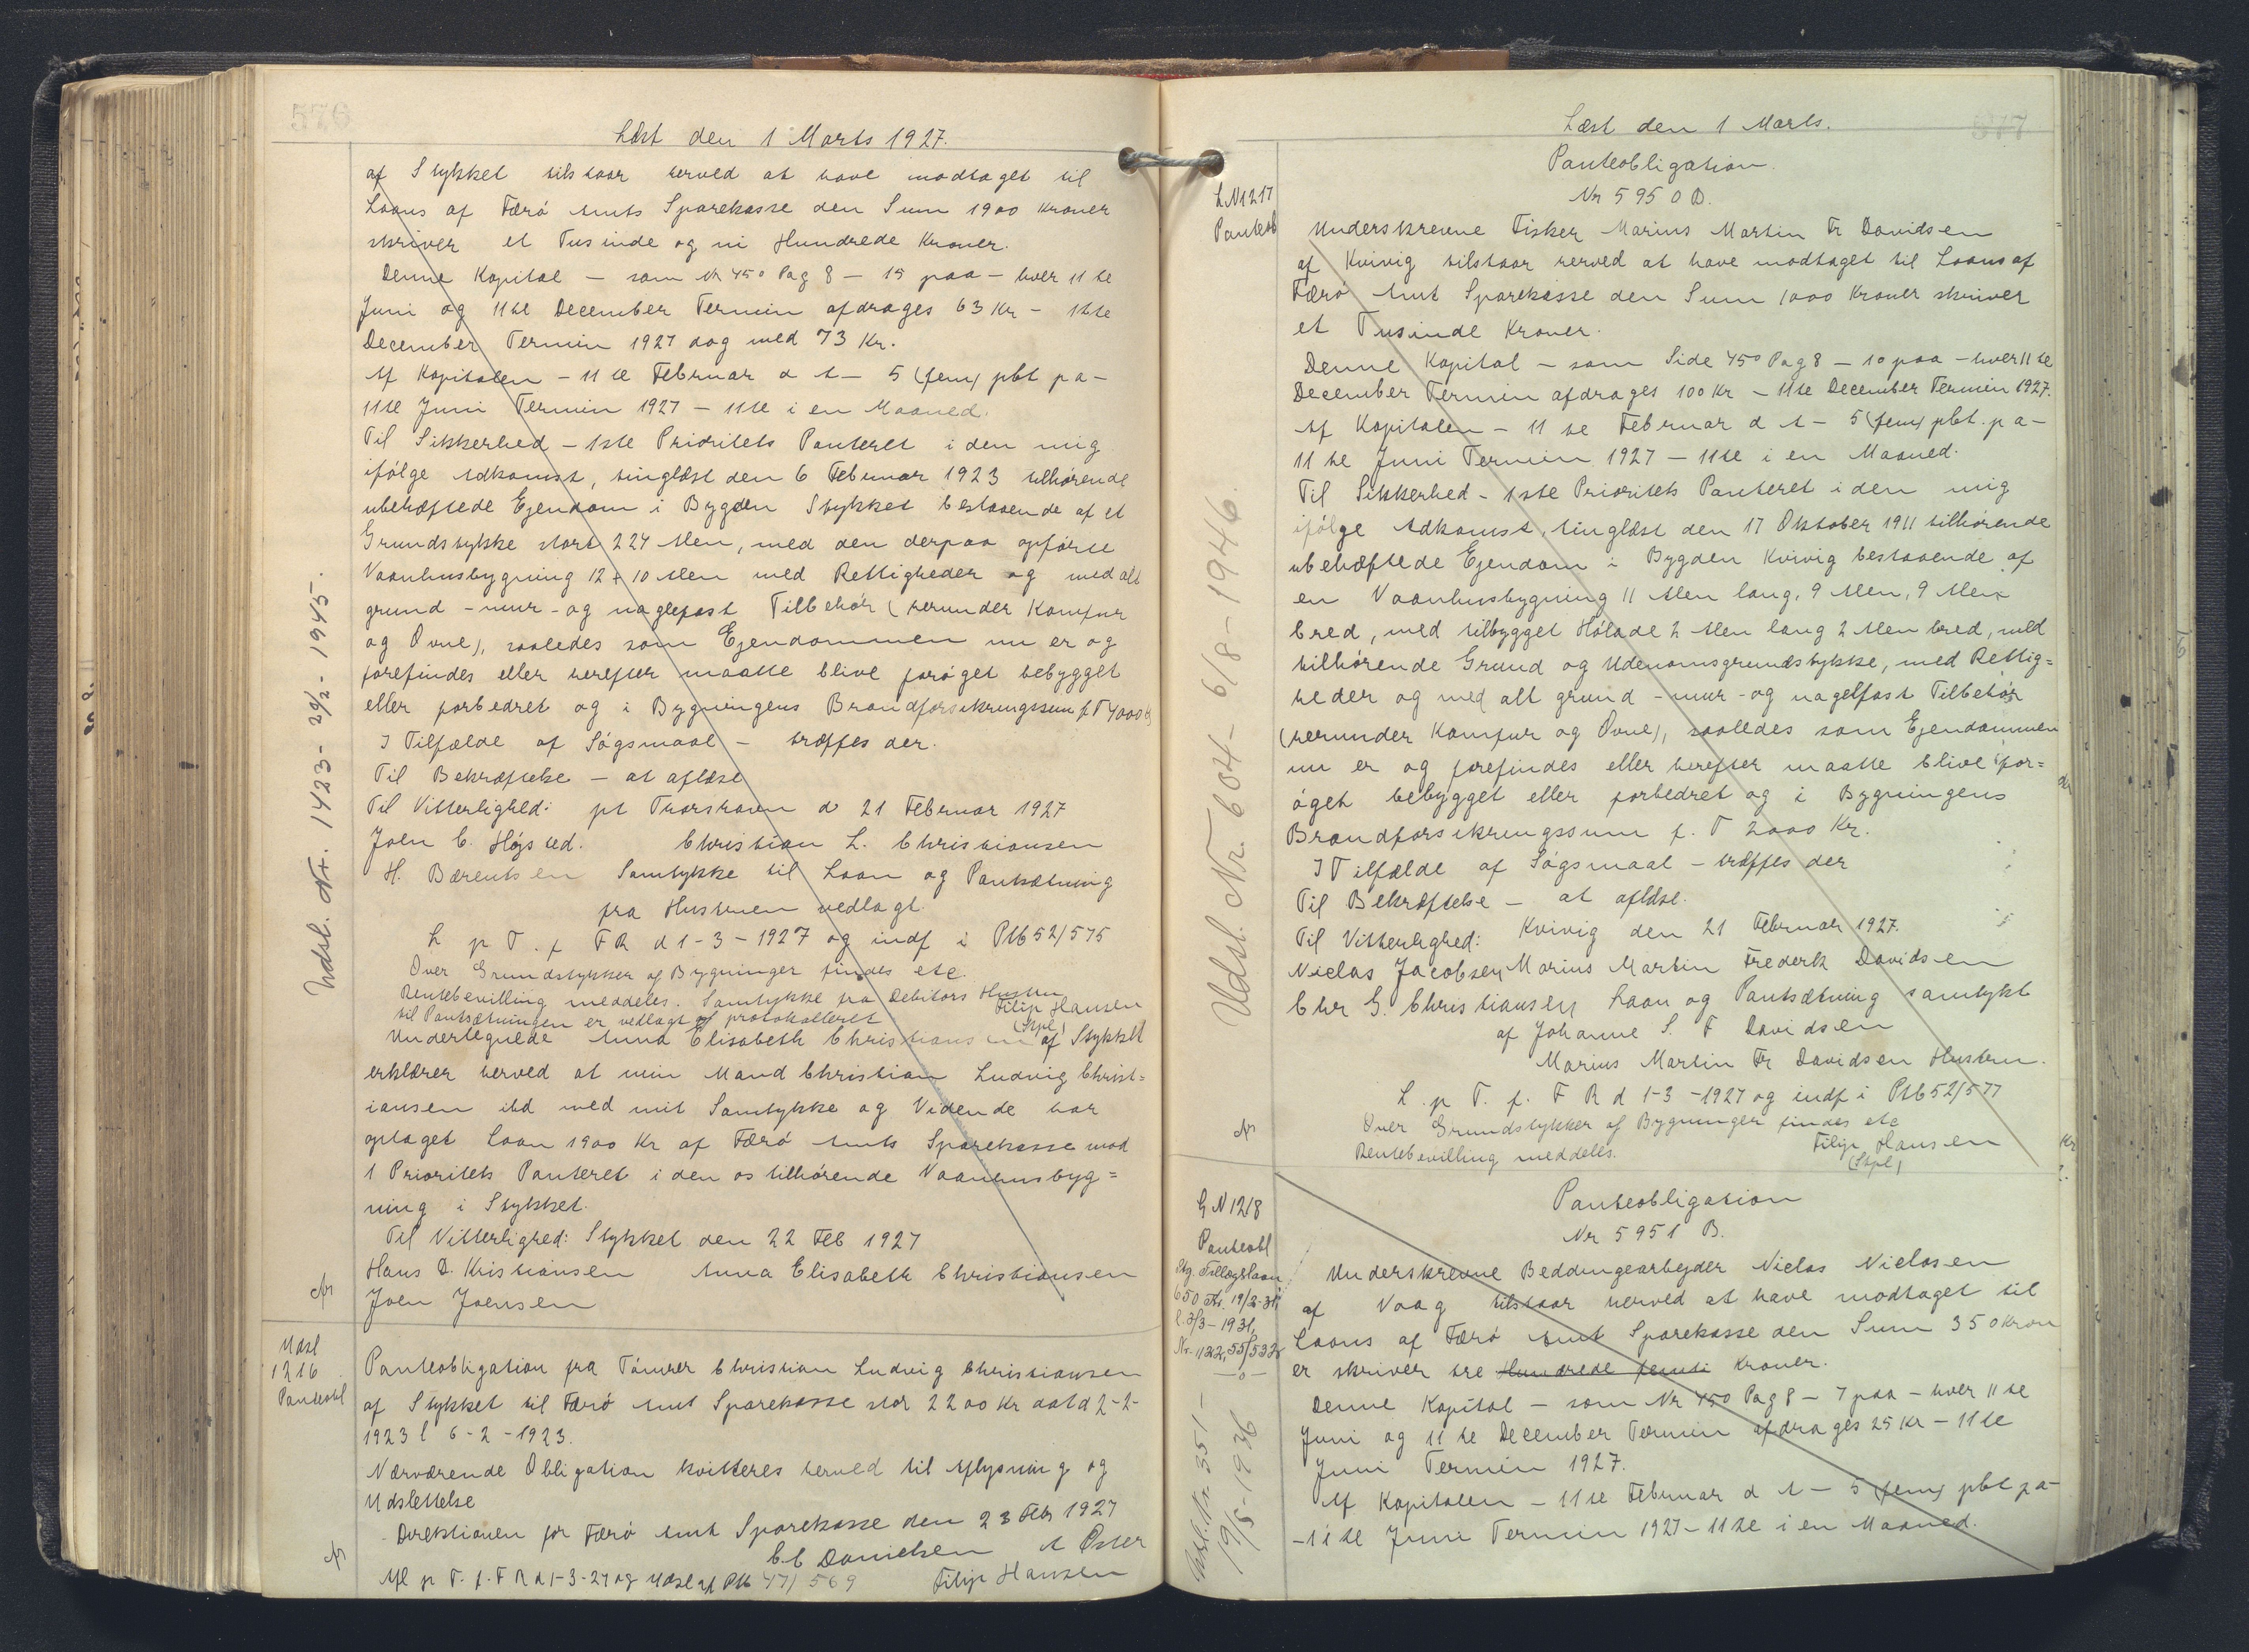 576
Læst den 1 Marts 1927.
af Stykket tilstaar herved at have modtaget til
Laans af Færø Amts Sparekasse den Sum 1900 Kroner
skriver et Tusinde og ni Hundrede Kroner.
Denne Kapital – som Nr 450 Pag 8 – 15 paa – hver 11 te
Juni og 11te December Termin afdrages 63 Kr – 11te
December Termin 1927 dog med 73 Kr.
Af Kapitalen – 11 te Februar d A – 5 (fem) pCt pa –
11te Juni Termin 1927 – 11te i en Maaned.
Til Sikkerhed – 1ste Prioritets Panteret i den mig
ifølge Adkomst, tinglæst den 6 Februar 1923 tilhørende
ubehæftede Ejendom i Bygden Stykket bestaaende af et
Grundstykke stort 224 Alen, med den derpaa opførte
Vaanhusbygning 12 + 10 Alen med Rettigheder og med alt
grund – mur – og naglefast Tilbehør (herunder Komfur
og Ovne), saaledes som Ejendommen nu er og
forefindes eller herefter maatte blive forøget bebygget
eller forbedret og i Bygningens Brandforsikringssum f T 4000 Kr
I Tilfælde af Søgsmaal – træffes der.
Til Bekræftelse – at aflæse
Til Vitterlighed: pt Thorshavn d 21 Februar 1927
Joen C. Høgsted. Christian L. Christiansen
H. Bærentsen Samtykke til Laan og Pantsætning
fra Hustruen vedlagt.
L p T. f FR d 1-3-1927 og indf i Ptb 52/575
Over Grundstykker og Bygninger findes etc.
Rentebevilling meddeles. Samtykke fra Debitors Hustru
til Pantsætningen er vedlagt og protokolleret Filip Hansen
(Stpl)
Undertegnede Anna Elisabeth Christiansen af Stykket
erklærer herved at min Mand Christian Ludvig Christ=
iansen ibd med mit Samtykke og Vidende har
optaget Laan 1900 Kr af Færø Amts Sparekasse mod
1 Prioritets Panteret i den os tilhørende Vaanhusbyg=
ning i Stykket.
Til Vitterlighed: Stykket den 22 Feb 1927
Hans D. Kristiansen Anna Elisabeth Christiansen
Joen Joensen
Udsl. Nr. 1423 - 29/2 - 1945.
Udsl
1216
Panteobl
Panteobligation fra Tømrer Christian Ludvig Christiansen
af Stykket til Færø Amt Sparekasse stor 2200 Kr dat d 2-2-
1923 l 6-2-1923.
Nærværende Obligation kvitteres herved til Aflysning og
Udslettelse
Direktionen for Færø Amt Sparekasse den 23 Feb 1927
C.C Danielsen A Øster
Afl p T. f. F R d 1-3-27 og Udsl af Ptb 47/569 Filip Hansen
577
Læst den 1 Marts.
Panteobligation.
Nr 5950 B.
L. N 1217
Panteob
Underskrevne Fisker Marius Martin Fr Davidsen
af Kvivig tilstaar herved at have modtaget til Laans af
Færø Amt Sparekasse den Sum 1000 Kroner skriver
et Tusinde Kroner.
Denne Kapital – som Side 450 Pag 8 – 10 paa – hver 11 te
December Termin afdrages 100 Kr – 11te December Termin 1927.
Af Kapitalen – 11 te Februar d A – 5 (fem) pCt. p a –
11 te Juni Termin 1927 – 11te i en Maaned.
Til Sikkerhed – 1ste Prioritets Panteret i den mig
ifølge Adkomst, tinglæst den 17 Oktober 1911 tilhørende
ubehæftede Ejendom i Bygden Kvivig bestaaende af
en Vaanhusbygning 11 Alen lang, 9 Alen, 9 Alen
bred, med tilbygget Hølade 2 Alen lang 2 Alen bred, med
tilhørende Grund og Udenomsgrundstykke, med Rettig=
heder og med alt grund – mur – og nagelfast Tilbehør
(herunder Komfur og Ovne), saaledes som Ejendommen
nu er og forefindes eller herefter maatte blive for=
øget bebygget eller forbedret og i Bygningens
Brandforsikringssum f. T 2000 Kr.
I Tilfælde af Søgsmaal – træffes der
Til Bekræftelse – at aflæse.
Til Vitterlighed: Kvivig den 21 Februar 1927.
Niclas Jacobsen Marius Martin Frederk Davidsen
Chr G. Christiansen Laan og Pantsætning samtykt
af Johanne S. F Davidsen
Marius Martin Fr Davidsen Hustru.
L. p T. f. F R d 1-3-1927 og indf i Ptb 52/577
Over Grundstykker og Bygninger findes etc
Rentebevilling meddeles. Filip Hansen
(Stpl)
Udsl. Nr. 604 - 6/8 - 1946.
Panteobligation
Nr 5951 B.
G N 1218
Panteobl
Ptg. Tillægslaan
650 Kr. 19/2-31,
l. 3/3-1931,
Nr. 1122, 55/532
—o—
Udsl. Nr 351 –
19/5-1936
Underskrevne Beddingearbejder Niclas Niclasen
af Vaag tilstaar herved at have modtaget til
Laans af Færø Amt Sparekasse den Sum 350 Kron
er skriver tre Hundrede femti Kroner.
Denne Kapital – som Nr 450 Pag 8 – 7 paa – hver 11 te
Juni og 11 te December Termin afdrages 25 Kr – 11te
Juni Termin 1927.
Af Kapitalen – 11te Februar d A – 5 (fem) pCt pa –
– 11 te Juni Termin 1927 – 11te i en Maaned.